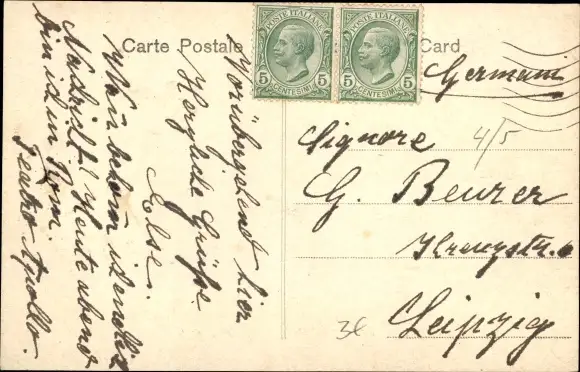 Carte Postale
Card
POSTE ITALIANE
5 CENTESIMI 5
POSTE ITALIANE
5 CENTESIMI 5
Vorübergehend hier
Herzliche Grüße
Else.
Wann bekom ich endlich
Nachricht? Heute abend
bin ich in Rom.
Teatro Apollo.
Germani
Signore
4/5
G. Beurer
Kreuzstr. 6
Leipzig